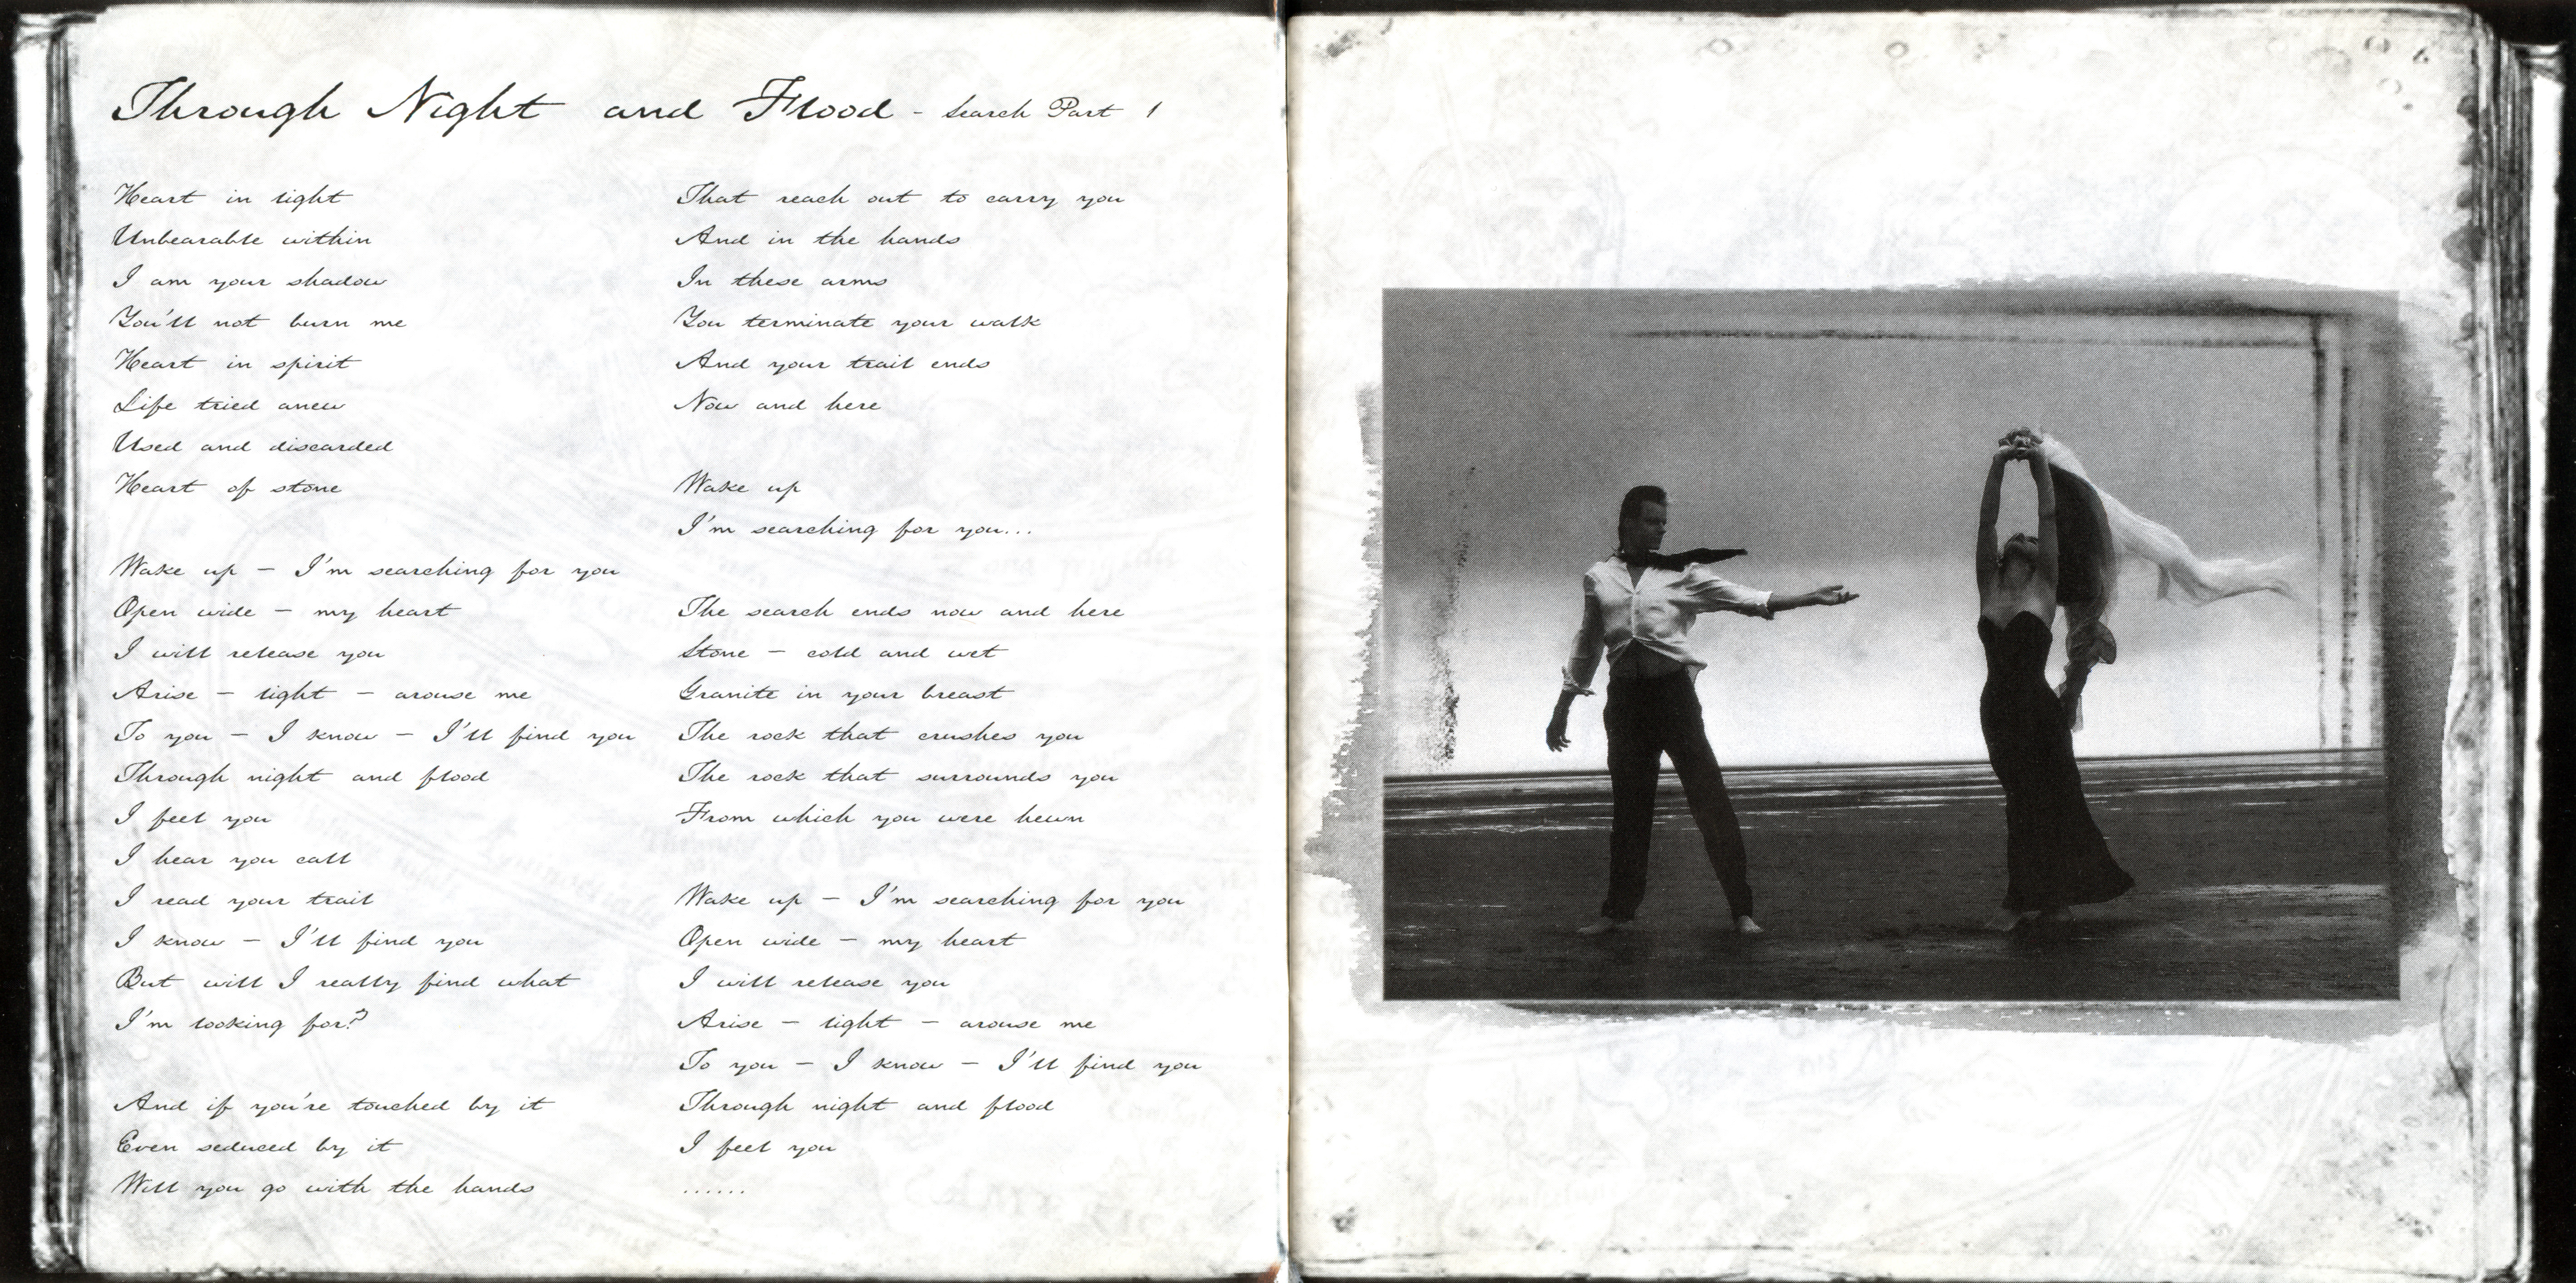 Through Night and Flood - Search Part 1
Heart in light
Unbearable within
I am your shadow
You'll not burn me
Heart in spirit
Life tried anew
Used and discarded
Heart of stone
Wake up – I'm searching for you
Open wide – my heart
I will release you
Arise – light – arouse me
To you – I know – I'll find you
Through night and flood
I feel you
I hear you call
I read your trail
I know – I'll find you
But will I really find what
I'm looking for?
And if you're touched by it
Even seduced by it
Will you go with the hands
That reach out to carry you
And in the hands
In these arms
You terminate your walk
And your trail ends
Now and here
Wake up
I'm searching for you...
The search ends now and here
Stone – cold and wet
Granite in your breast
The rock that crushes you
The rock that surrounds you
From which you were hewn
Wake up – I'm searching for you
Open wide – my heart
I will release you
Arise – light – arouse me
To you – I know – I'll find you
Through night and flood
I feel you
......